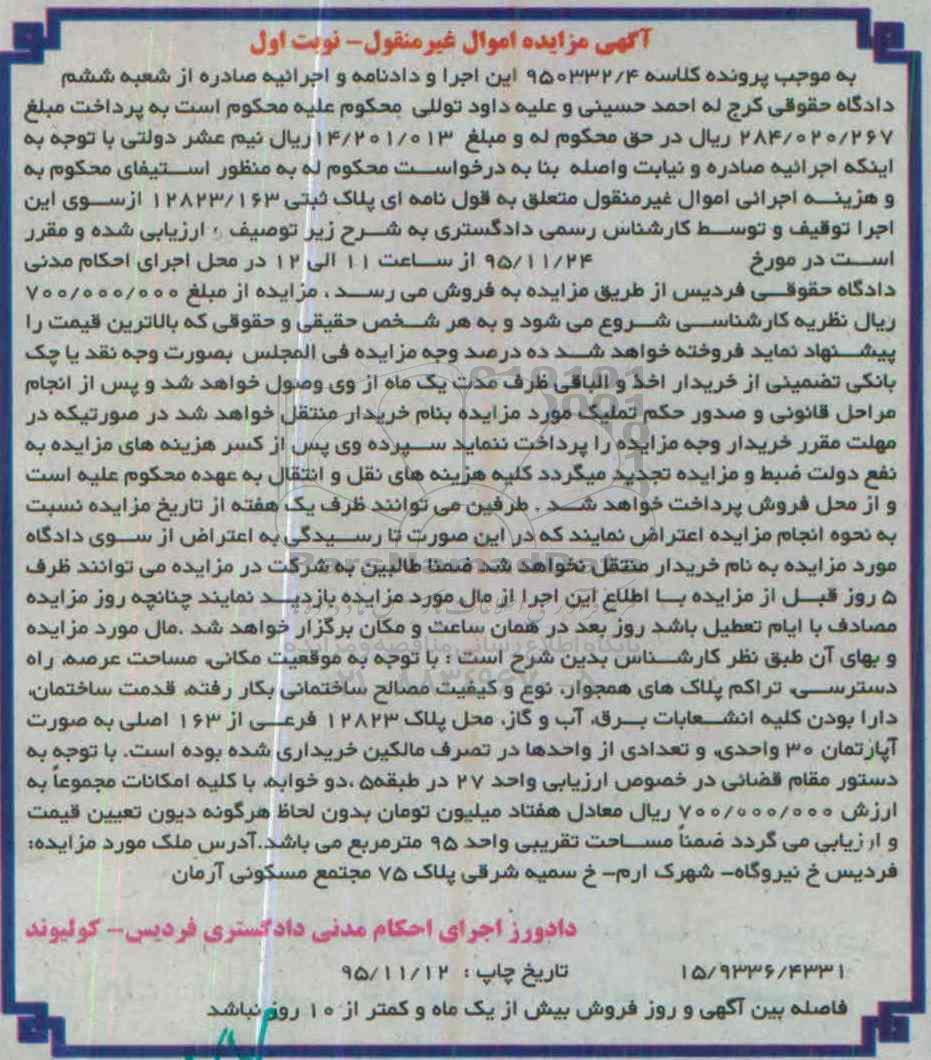 آگهی مزایده اموال غیرمنقول- نوبت اول
به موجب پرونده کلاسه ۹۵۰۳۳۲/۴ این اجرا و دادنامه و اجرائیه صادره از شعبه ششم
دادگاه حقوقی کرج له احمد حسینی و علیه داود توللی محکوم علیه محکوم است به پرداخت مبلغ
۲۸۴/۰۲۰/۲۶۷ ریال در حق محکوم له و مبلغ ۱۴/۲۰۱/۰۱۳ریال نیم عشر دولتی با توجه به
اینکه اجرائیه صادره و نیابت واصله بنا به درخواست محکوم له به منظور استیفای محکوم به
و هزینه اجرائی اموال غیرمنقول متعلق به قول نامه ای پلاک ثبتی ۱۲۸۲۳/۱۶۳ ازسوی این
اجرا توقیف و توسط کارشناس رسمی دادگستری به شرح زیر توصیف ، ارزیابی شده و مقرر
است در مورخ ۹۵/۱۱/۲۴ از ساعت ۱۱ الی ۱۲ در محل اجرای احکام مدنی
دادگاه حقوقی فردیس از طریق مزایده به فروش می رسد ، مزایده از مبلغ ۷۰۰/۰۰۰/۰۰۰
ریال نظریه کارشناسی شروع می شود و به هر شخص حقیقی و حقوقی که بالاترین قیمت را
پیشنهاد نماید فروخته خواهد شد ده درصد وجه مزایده فی المجلس بصورت وجه نقد یا چک
بانکی تضمینی از خریدار اخذ و الباقی ظرف مدت یک ماه از وی وصول خواهد شد و پس از انجام
مراحل قانونی و صدور حکم تملیک مورد مزایده بنام خریدار منتقل خواهد شد در صورتیکه در
مهلت مقرر خریدار وجه مزایده را پرداخت ننماید سپرده وی پس از کسر هزینه های مزایده به
نفع دولت ضبط و مزایده تجدید میگردد کلیه هزینه های نقل و انتقال به عهده محکوم علیه است
و از محل فروش پرداخت خواهد شد . طرفین می توانند ظرف یک هفته از تاریخ مزایده نسبت
به نحوه انجام مزایده اعتراض نمایند که در این صورت تا رسیدگی به اعتراض از سوی دادگاه
مورد مزایده به نام خریدار منتقل نخواهد شد ضمنا طالبین به شرکت در مزایده می توانند ظرف
۵ روز قبل از مزایده با اطلاع این اجرا از مال مورد مزایده بازدید نمایند چنانچه روز مزایده
مصادف با ایام تعطیل باشد روز بعد در همان ساعت و مکان برگزار خواهد شد .مال مورد مزایده
و بهای آن طبق نظر کارشناس بدین شرح است : با توجه به موقعیت مکانی، مساحت عرصه، راه
دسترسی، تراکم پلاک های همجوار، نوع و کیفیت مصالح ساختمانی بکار رفته، قدمت ساختمان،
دارا بودن کلیه انشعابات برق، آب و گاز، محل پلاک ۱۲۸۲۳ فرعی از ۱۶۳ اصلی به صورت
آپارتمان ۳۰ واحدی، و تعدادی از واحدها در تصرف مالکین خریداری شده بوده است. با توجه به
دستور مقام قضائی در خصوص ارزیابی واحد ۲۷ در طبقه۵ ،دو خوابه، با کلیه امکانات مجموعاً به
ارزش ۷۰۰/۰۰۰/۰۰۰ ریال معادل هفتاد میلیون تومان بدون لحاظ هرگونه دیون تعیین قیمت
و ارزیابی می گردد ضمناً مساحت تقریبی واحد ۹۵ مترمربع می باشد.آدرس ملک مورد مزایده:
فردیس خ نیروگاه- شهرک ارم- خ سمیه شرقی پلاک ۷۵ مجتمع مسکونی آرمان
دادورز اجرای احکام مدنی دادگستری فردیس- کولیوند
۱۵/۹۳۳۶/۴۳۳۱ تاریخ چاپ : ۹۵/۱۱/۱۲
فاصله بین آگهی و روز فروش بیش از یک ماه و کمتر از ۱۰ روز نباشد